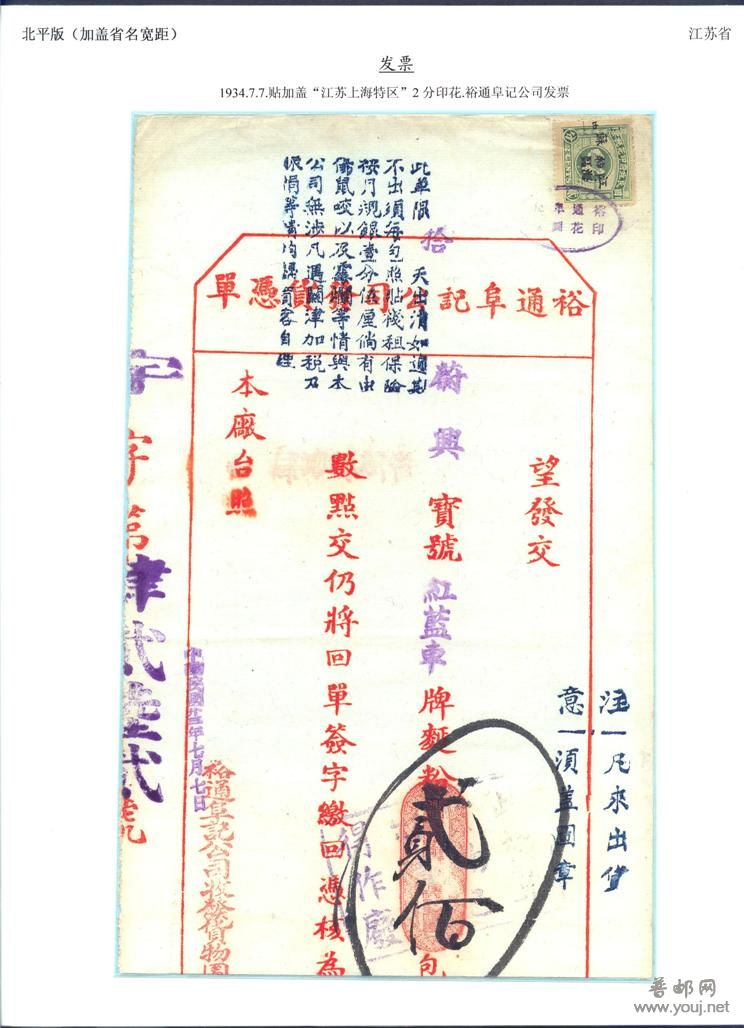 北平版（加盖省名宽距）
江苏省
发票
1934.7.7.贴加盖“江苏上海特区”2 分印花.裕通阜记公司发票
裕通阜記公司發貨憑單
此單限拾天出清如過期
不出須每包照貼棧租保險
按月規銀壹分伍厘倘有由
傷鼠咬以及霉爛等情與本
公司無涉凡遇關津加稅及
注意
一凡來出貨
一須蓋圖章
望發交
蔚興寶號紅藍車牌麵粉貳佰包
數點交仍將回單簽字繳回憑核為
本廠台照
中華民國廿三年七月七日
裕通阜記公司
字第肆貳陸貳號
普邮网
www.youj.net